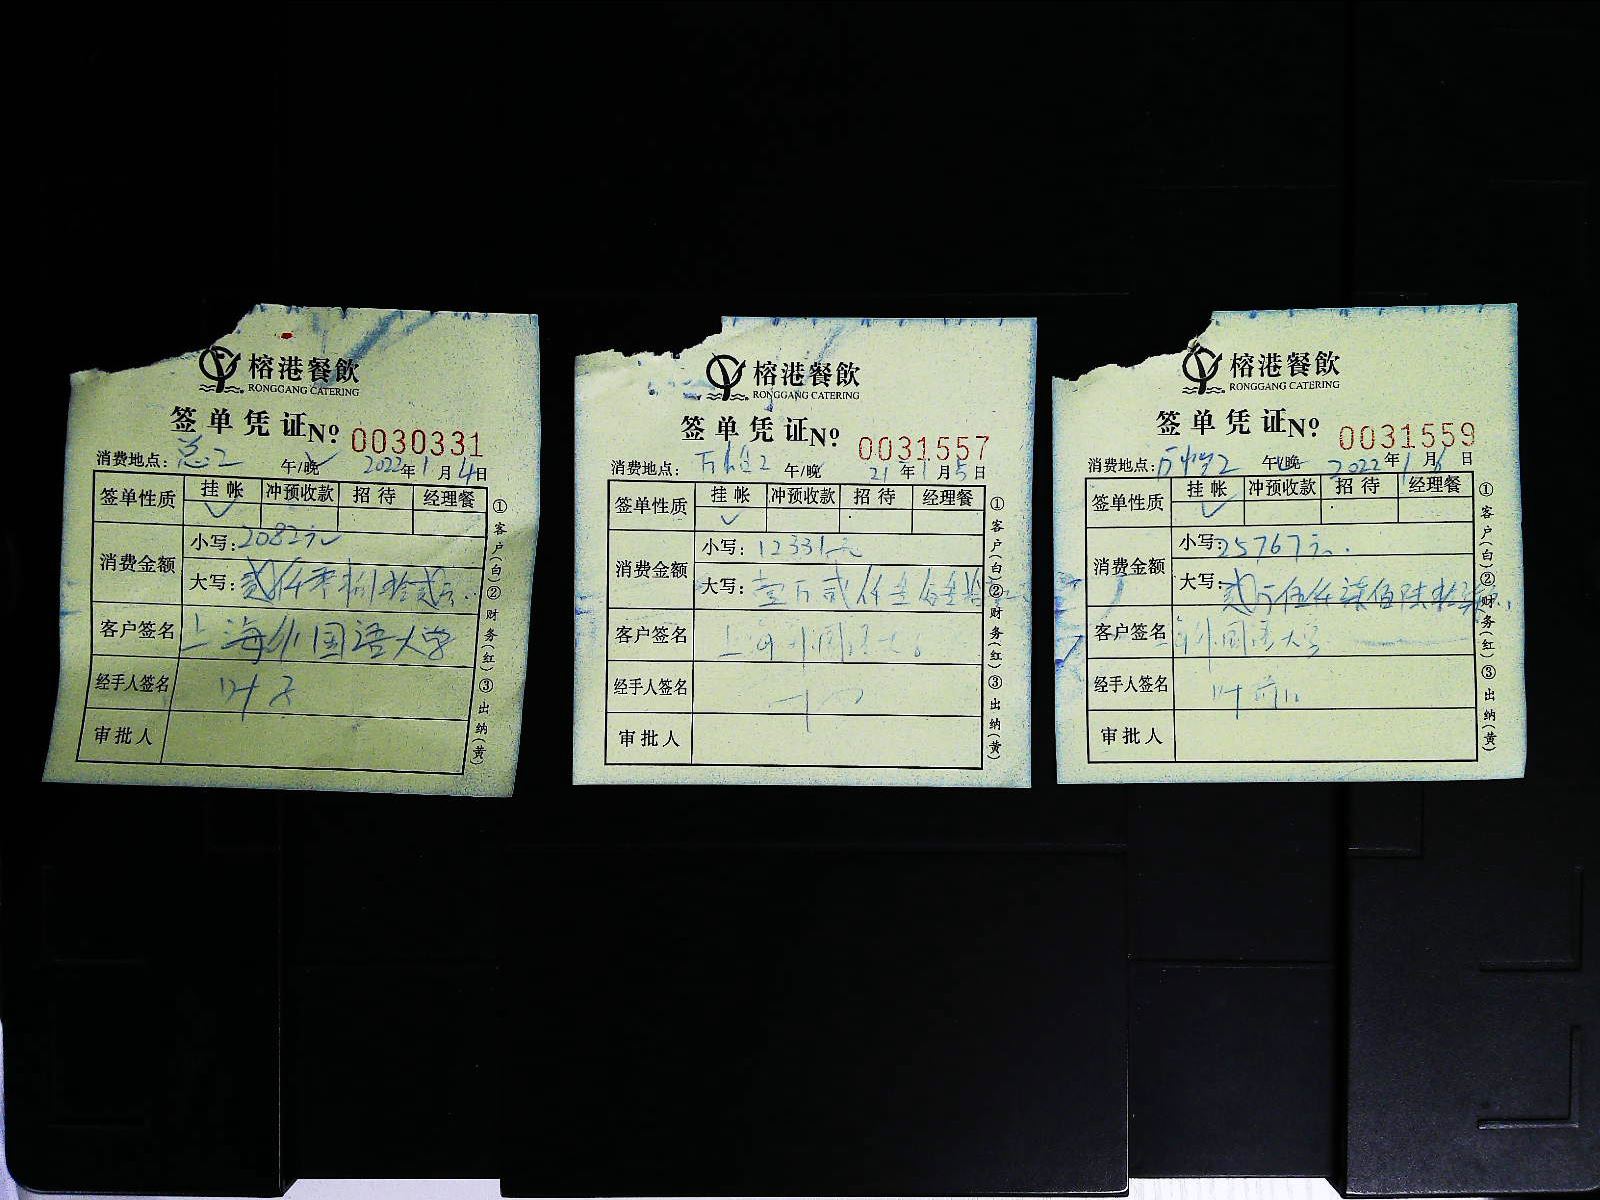 榕港餐飲
RONGGANG CATERING
签单凭证 No 0030331
消费地点: 午/晚 2022年1月4日
签单性质 挂帐 冲预收款 招待 经理餐
消费金额 小写: 2082元
大写: 贰仟零捌拾贰元
客户签名 上海外国语大学
经手人签名 叶
审批人
①客户(白)②财务(红)③出纳(黄)
榕港餐飲
RONGGANG CATERING
签单凭证 No 0031557
消费地点: 午/晚 21年1月5日
签单性质 挂帐 冲预收款 招待 经理餐
消费金额 小写: 12331元
大写: 壹万贰仟
客户签名 上海外国语大
经手人签名
审批人
①客户(白)②财务(红)③出纳(黄)
榕港餐飲
RONGGANG CATERING
签单凭证 No 0031559
消费地点: 午/晚 2022年1月6日
签单性质 挂帐 冲预收款 招待 经理餐
消费金额 小写: 25767元
大写: 贰万伍仟柒佰陆拾柒
客户签名 海外国语大学
经手人签名 叶
审批人
①客户(白)②财务(红)③出纳(黄)